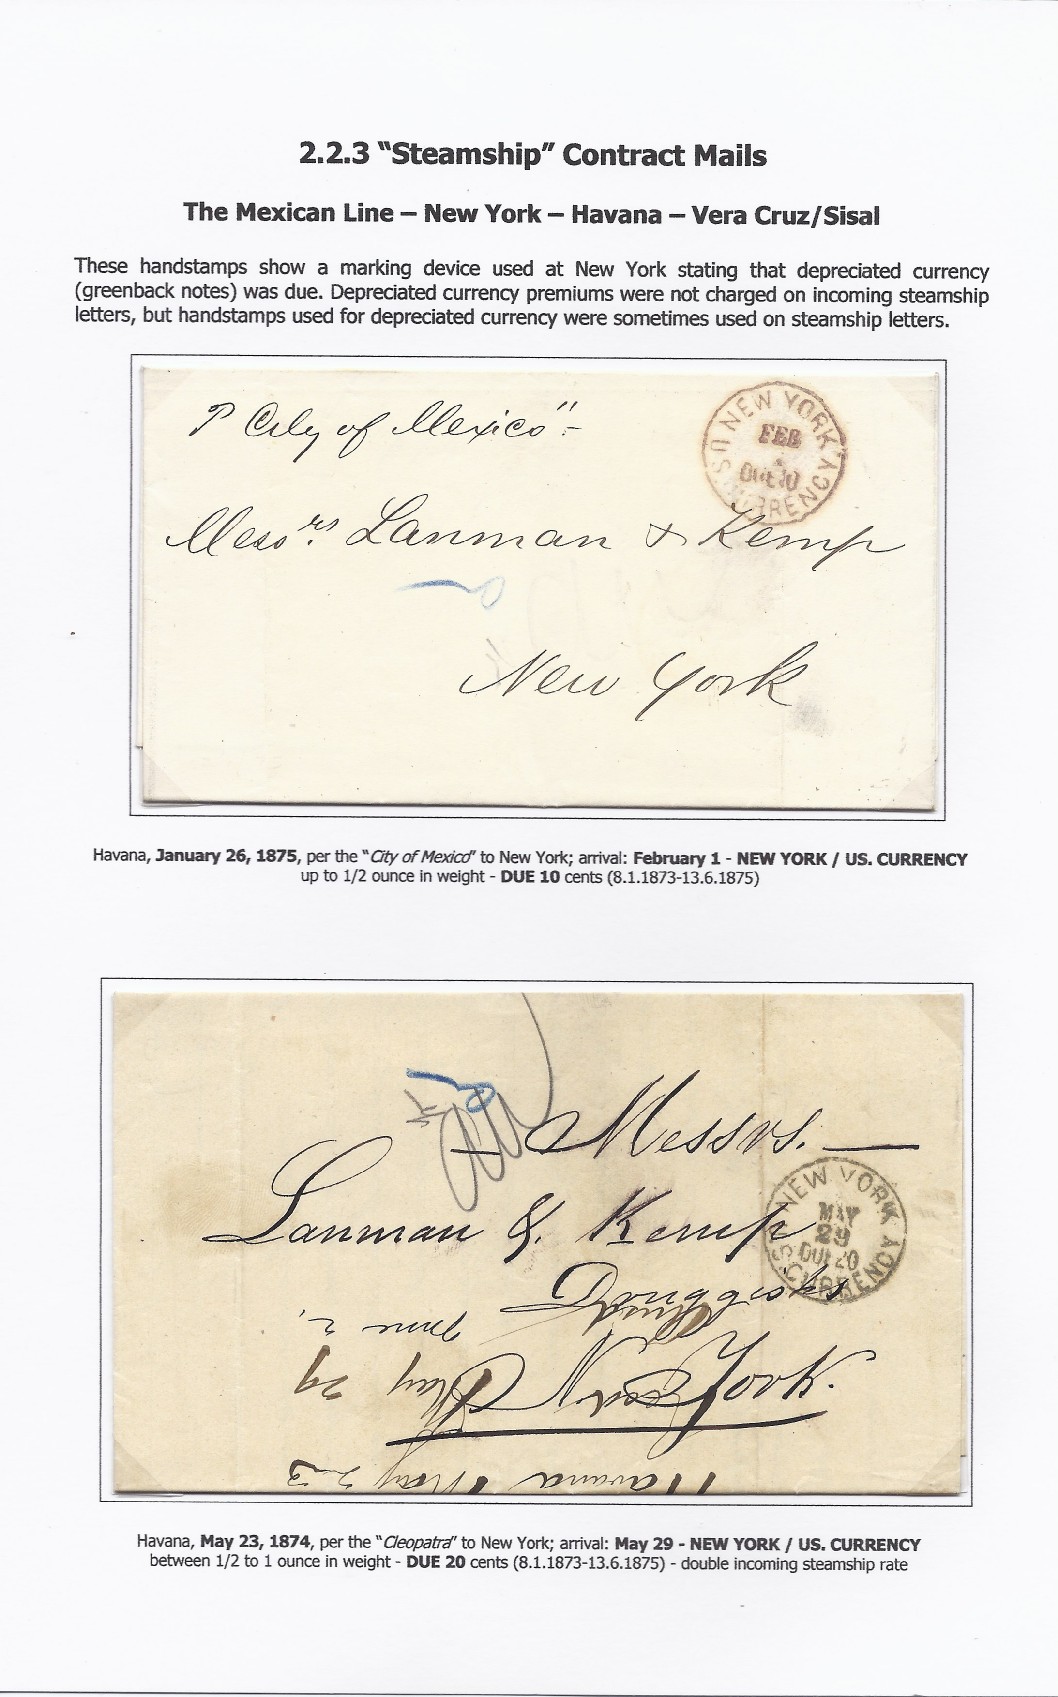 2.2.3 “Steamship” Contract Mails
The Mexican Line – New York – Havana – Vera Cruz/Sisal
These handstamps show a marking device used at New York stating that depreciated currency
(greenback notes) was due. Depreciated currency premiums were not charged on incoming steamship
letters, but handstamps used for depreciated currency were sometimes used on steamship letters.
P City of Mexico"-
NEW YORK
FEB
DUE 10
U.S. CURRENCY
Messrs. Lanman & Kemp
New York
Havana, January 26, 1875, per the "City of Mexico" to New York; arrival: February 1 - NEW YORK / US. CURRENCY
up to 1/2 ounce in weight - DUE 10 cents (8.1.1873-13.6.1875)
Messrs. —
Lanman & Kemp
Druggists
New York.
NEW YORK
MAY
29
DUE 20
U.S. CURRENCY
June 2.
May 29
Havana May 23
Havana, May 23, 1874, per the "Cleopatra" to New York; arrival: May 29 - NEW YORK / US. CURRENCY
between 1/2 to 1 ounce in weight - DUE 20 cents (8.1.1873-13.6.1875) - double incoming steamship rate